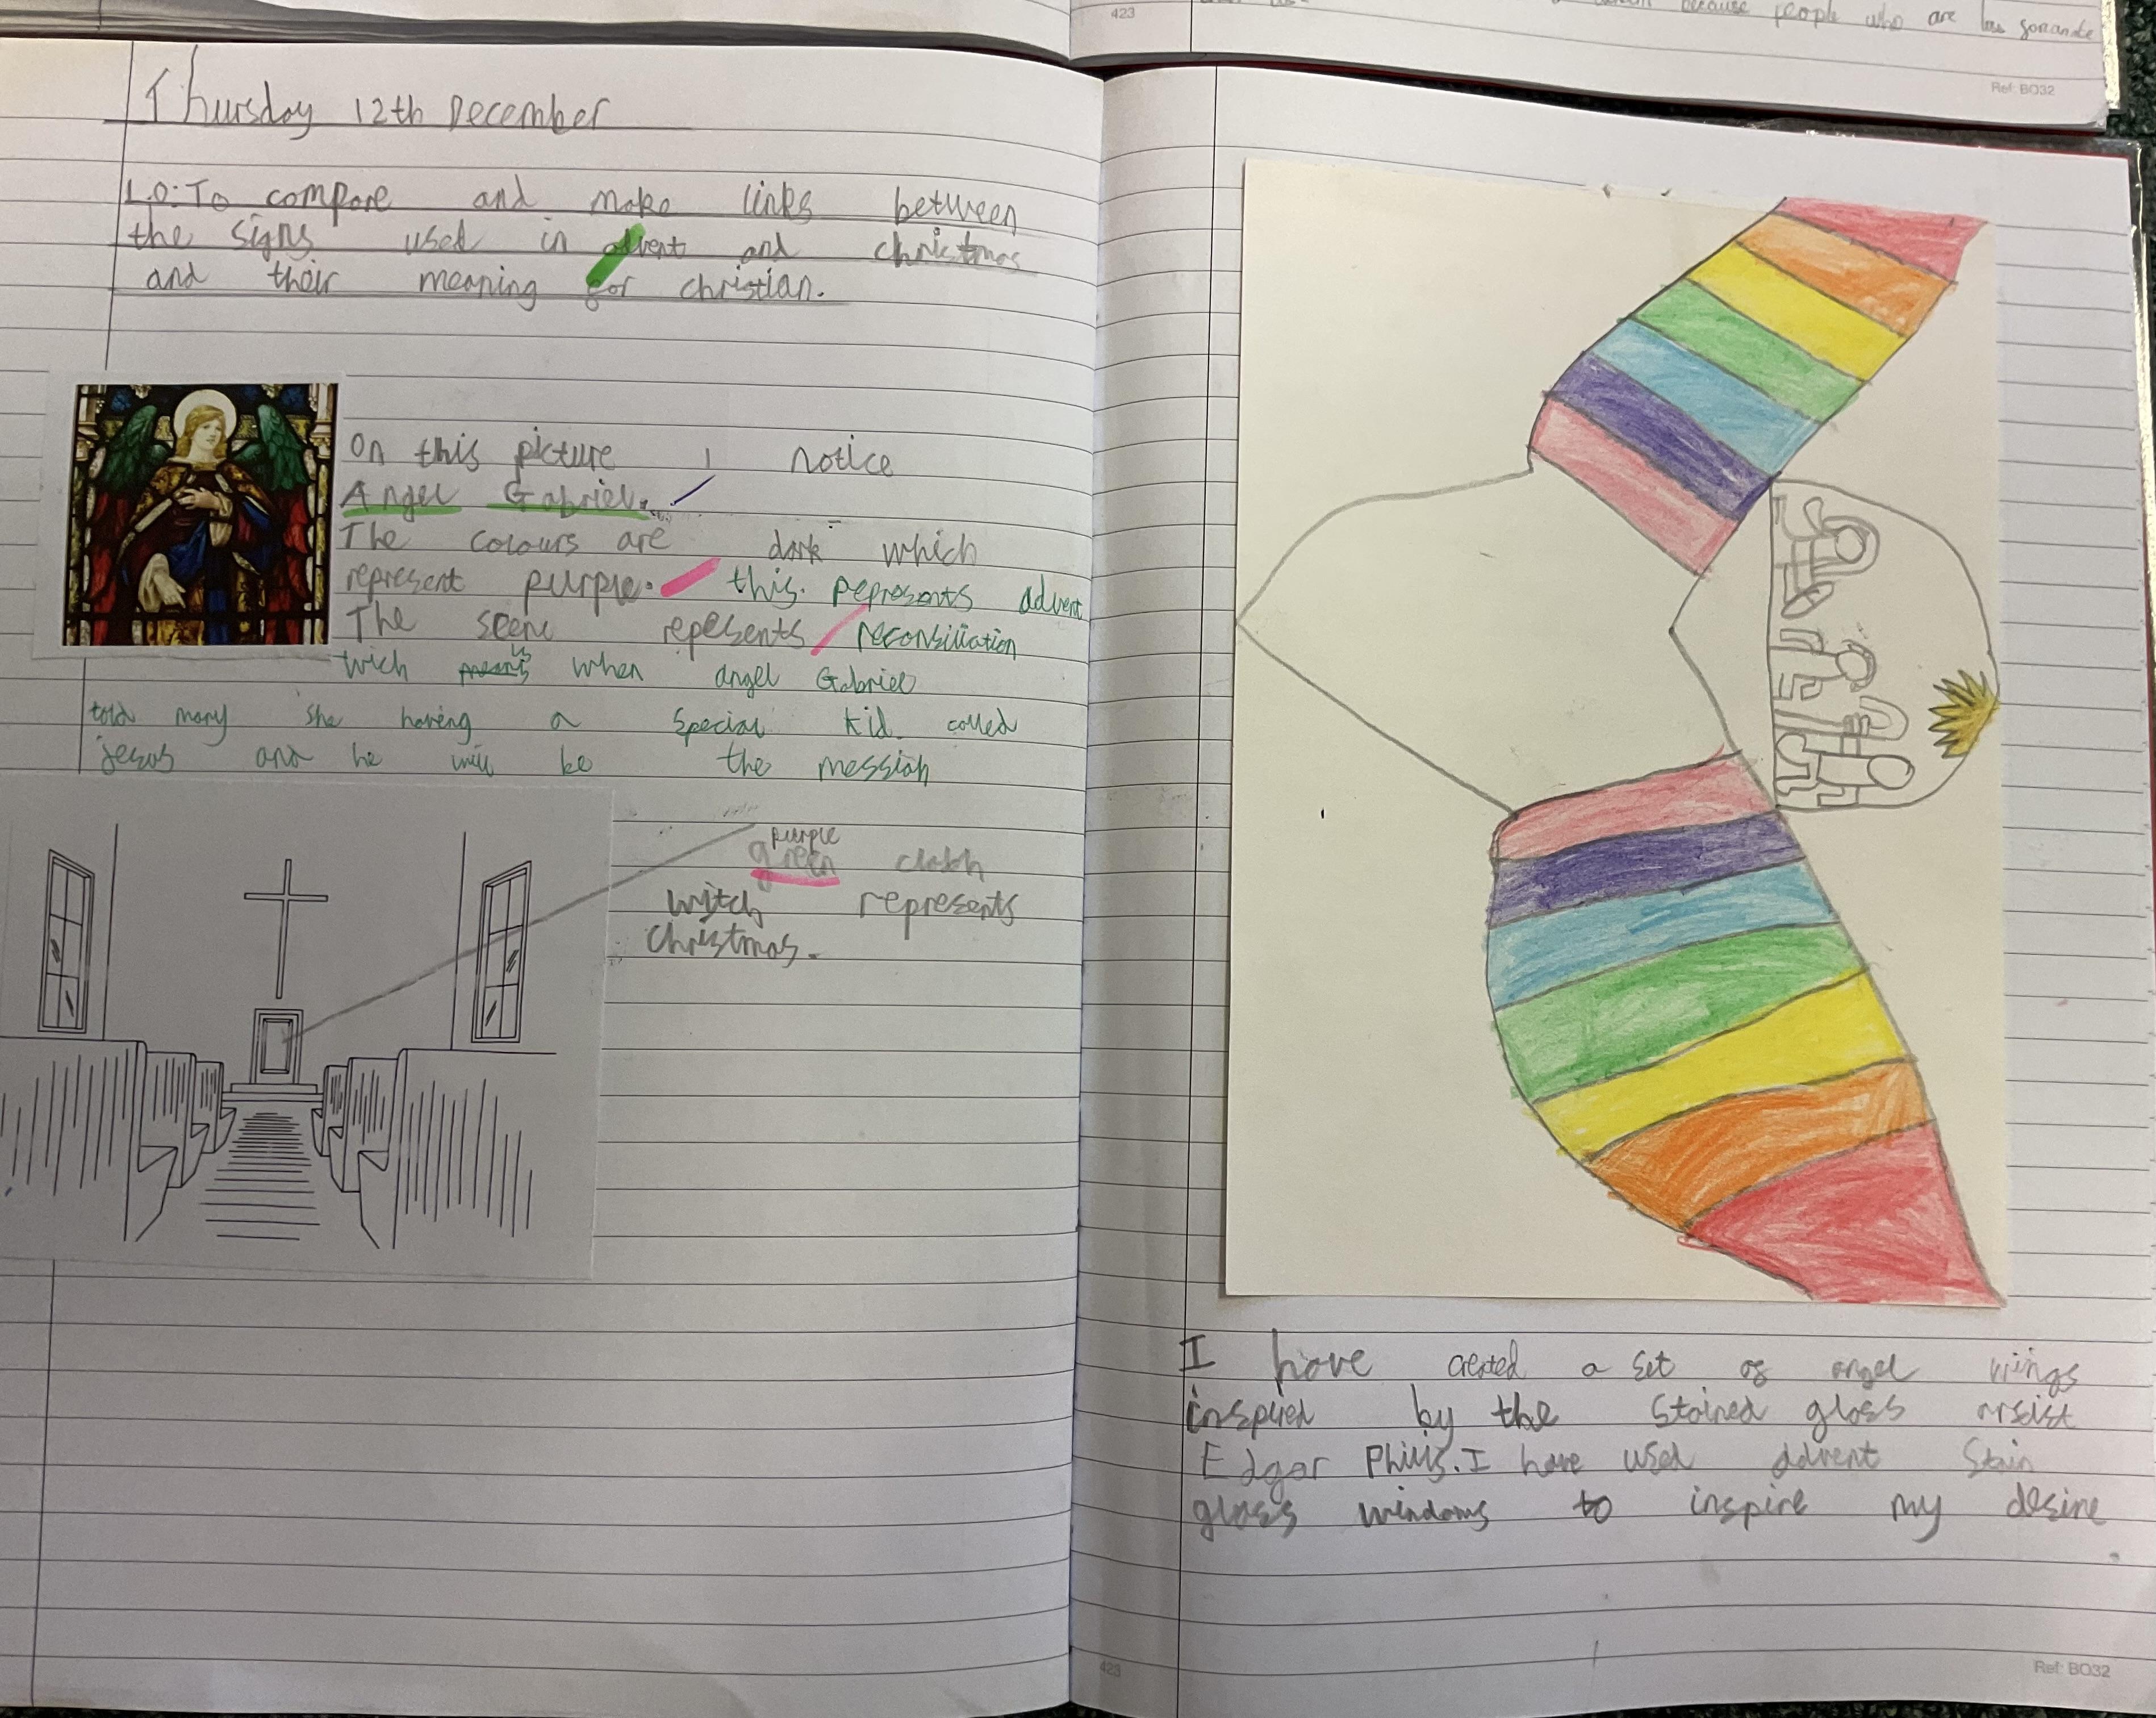 423
because people who are less
Ref: BO32
Thursday 12th December
L.O: To compare and make links between
the signs used in advent and christmas
and their meaning for christian.
On this picture I notice
Angel Gabriel.
The colours are dark which
represent purple. this. represents advent
The scene repesents reconsiliation
wich is when angel Gabriel
told mary she having a special kid called
jesus and he will be the messiah
purple
green cloth
witch represents
christmas.
I have created a set of angel wings
inspired by the stained glass arsist
Edgar Philis. I have used advent Stain
glass windows to inspire my desine
423
Ref: BO32